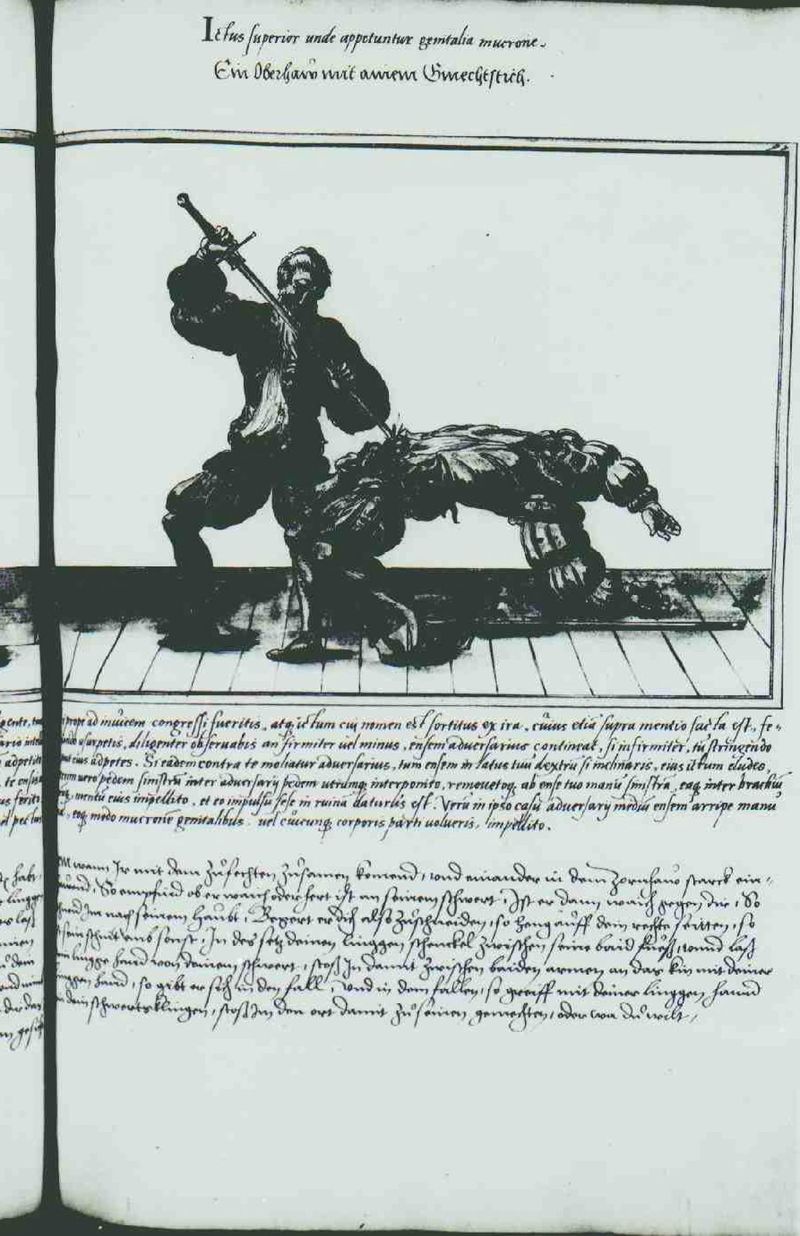 Ictus superior unde appetuntur genitalia mucrone.
Ein Oberhaw mit ainem Gmechtstich.
prope ad invicem congressi fueritis, atq ictum cui nomen est sortitus ex ira, cuius etiā supra mentio facta est, fe-
usurpetis, diligenter observabis an firmiter vel minus, ensem adversarius contineat, si infirmiter, tu stringendo
eius adpetes. Si eadem contra te moliatur adversarius, tum ensem in latus tuū dextrū si inclinaris, eius ictum eludes,
vero pedem sinistrū inter adversarij pedem utrumq interponito, removetoq ab ense tuo manū sinistrā, eaq inter brachiū
mentū eius impellito, et eo impulsu sese in ruinā daturus est. Verū in ipso casu adversarij mediū ensem arripe manu
eoq modo mucrone genitalibus, vel cuicunq corporis parti volueris, impellito.
wann Ir mit dem zůfechten zůsamen komend, vnnd einander in dem zornhaw starck ein-
So empfind ob er waich oder hert ist an seinem schwert, Ist er dann waich gegen dir, So
Im nach seinem haubt, Begert er dich also zůschneiden, so heng auff dein rechte seitten, so
schnit vmb sonst, In des setz deinen linggen schenckel zwischen seine baid fueß, vnnd laß
lingge hand von deinem schwert, stoß In damit zwischen baiden armen an das kin mit deiner
linggen hand, so gibt er sich in den fall, vnd in dem fallen, so greiff mit deiner linggen hannd
dein schwertsklingen, stoß Im den ort damit zů seinen gemechten, oder wa du wilt,